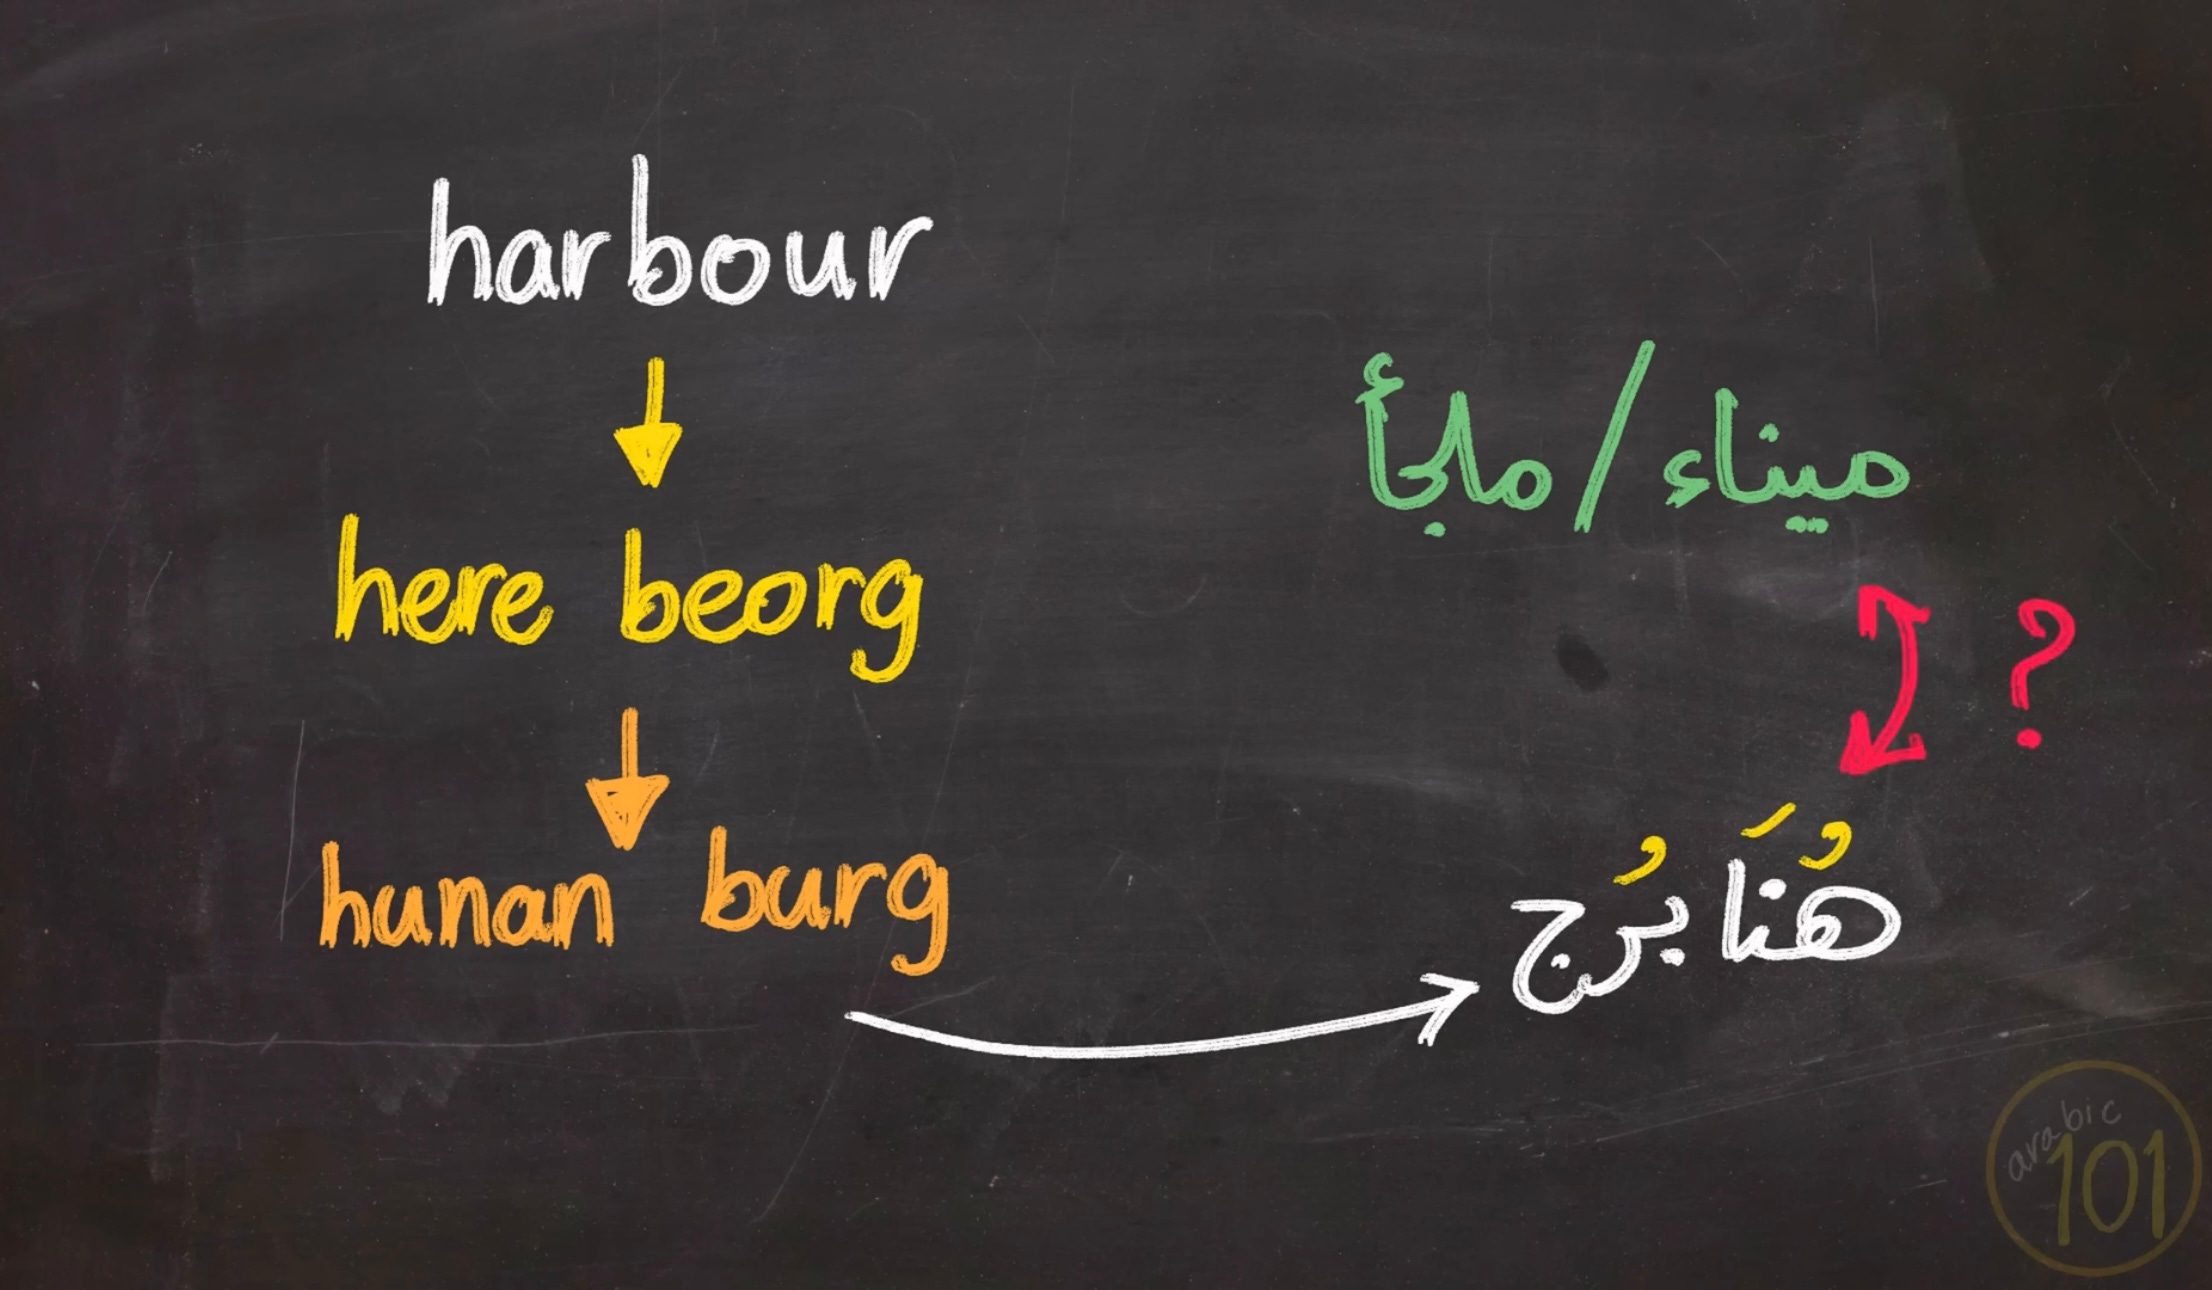 harbour
here beorg
hunan burg
ميناء/ملجأ
?
هُنَا بُرج
arabic
101